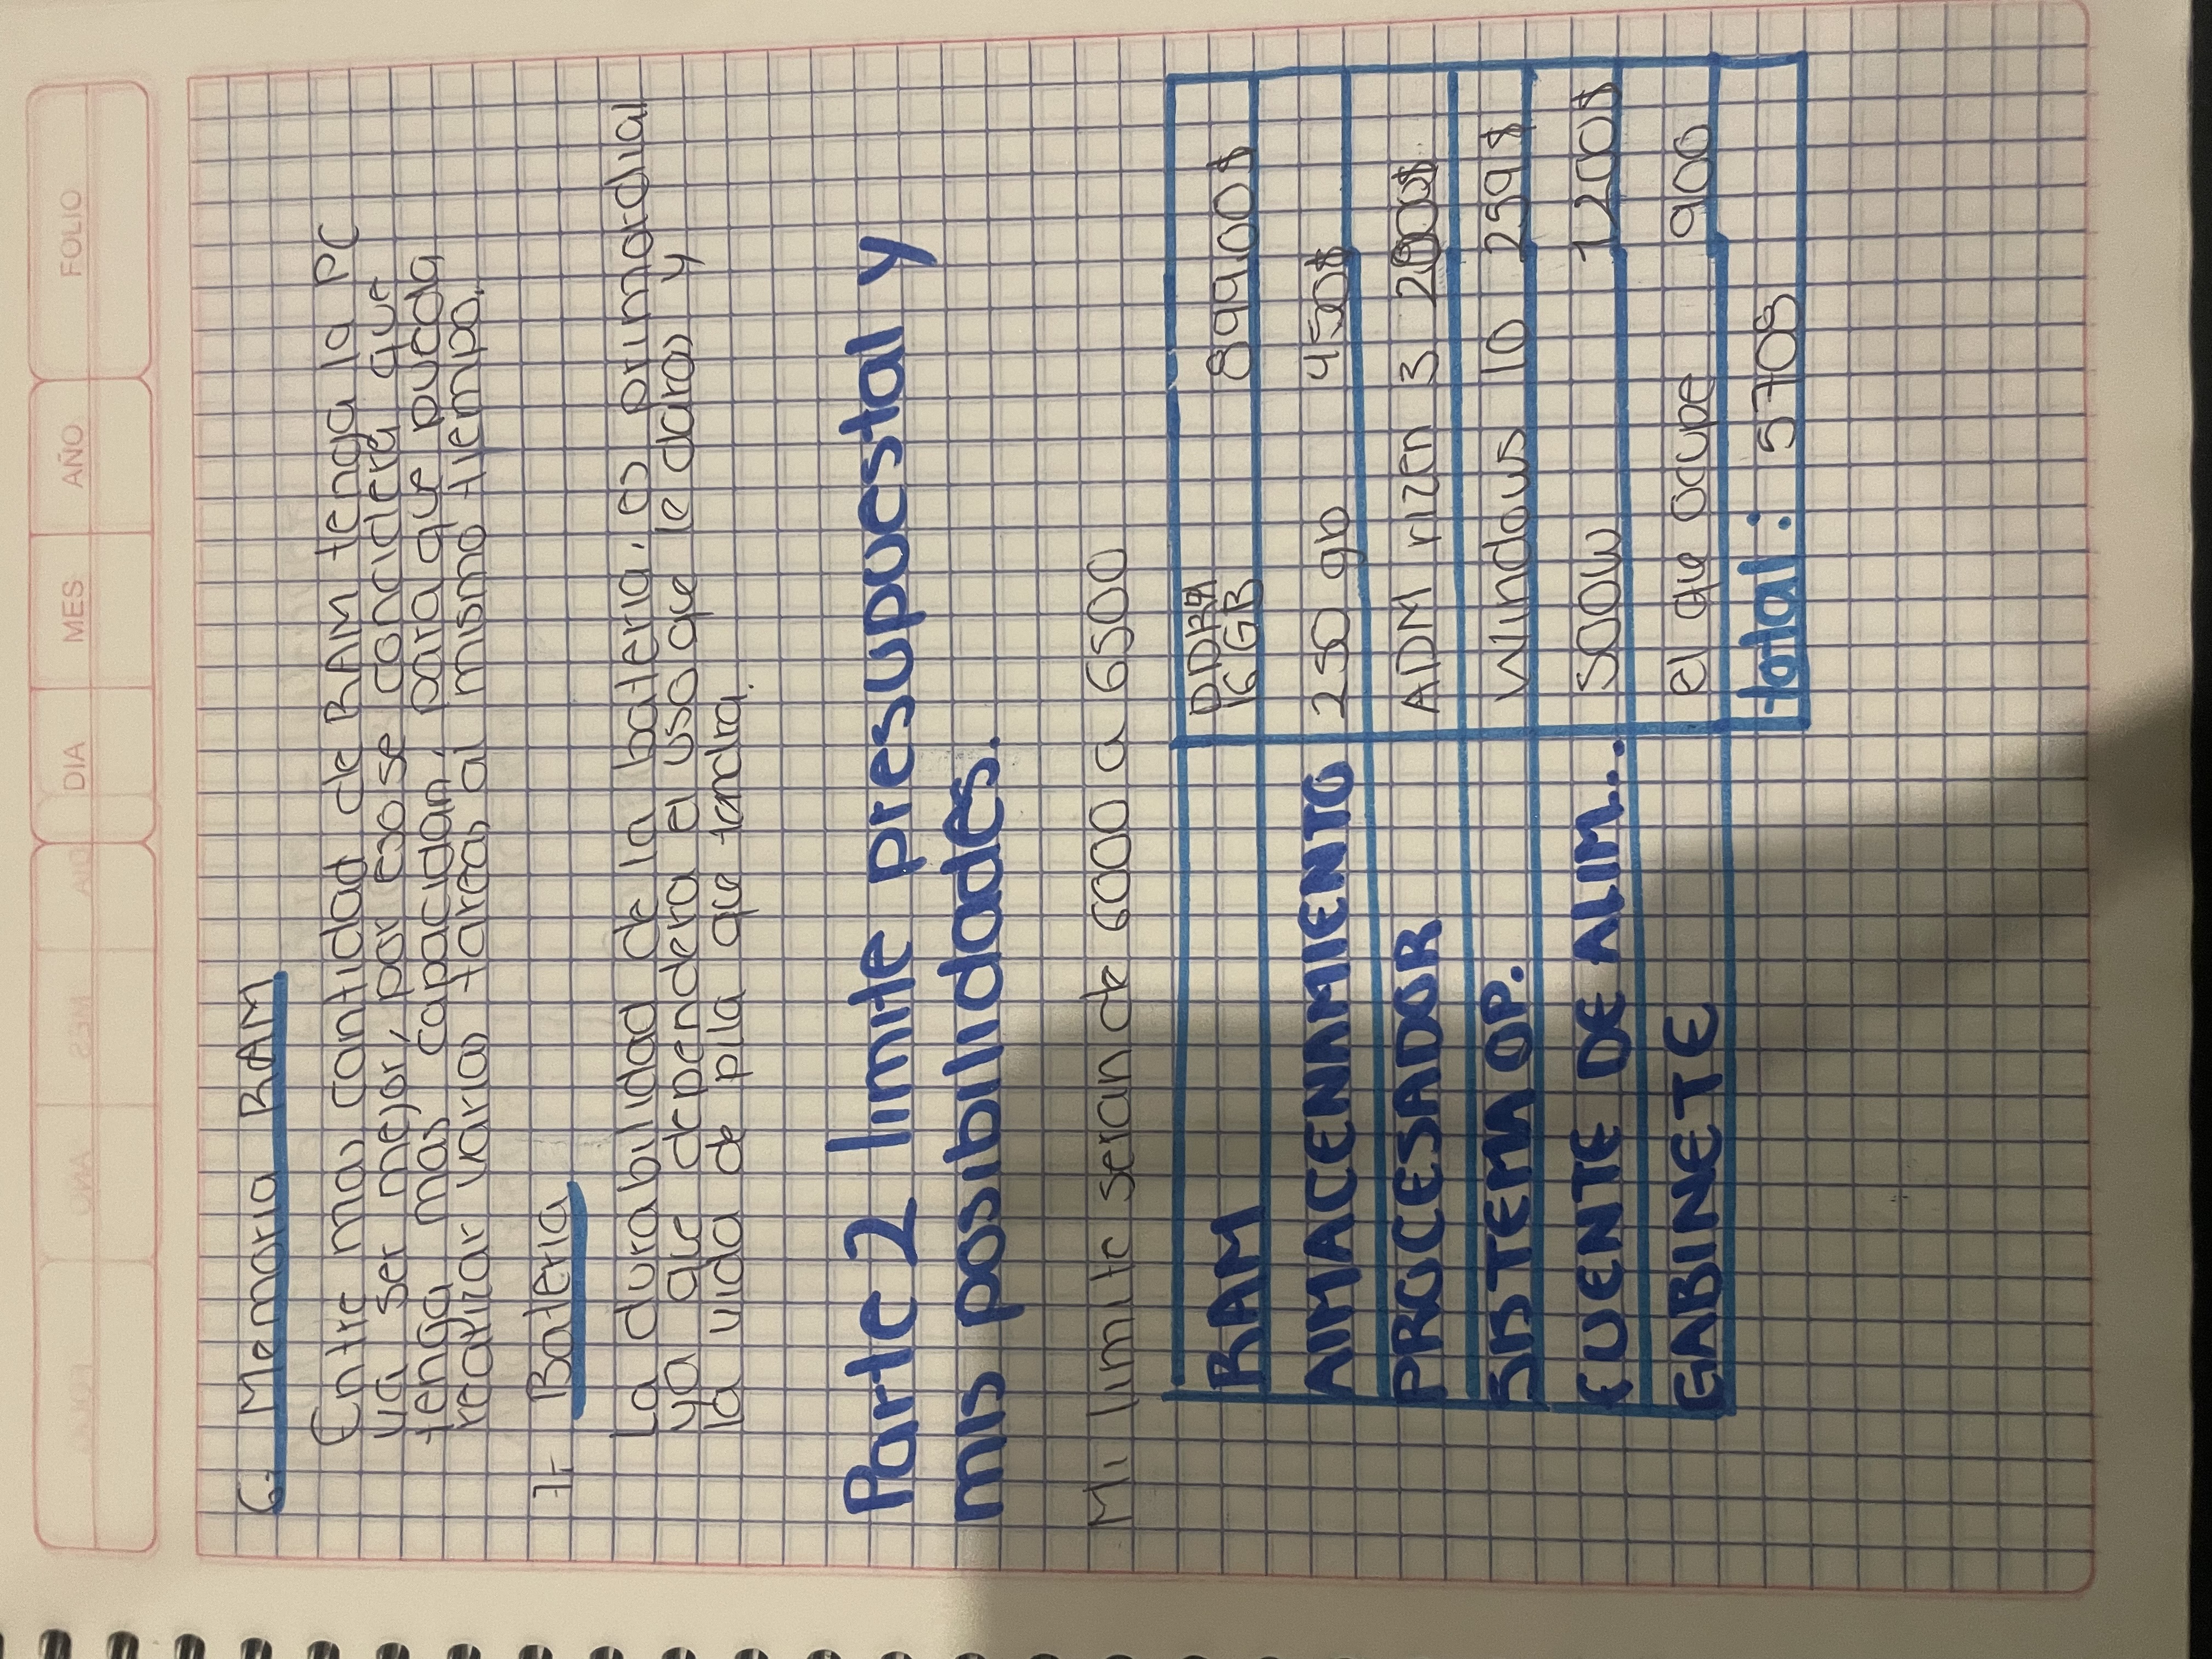 DIA MES AÑO FOLIO
6.- Memoria RAM
Entre mas cantidad de RAM tenga la PC
va ser mejor, por eso se concidera que
tenga mas capacidad, para que pueda
realizar varias tareas al mismo tiempo.
7.- Bateria
La durabilidad de la bateria, es primordial
ya que dependera el uso que le daras y
la vida de pila que tandra.
Parte 2 limite presupuestal y
mis posibilidades.
Mi limite seran de 6000 a 6500
RAM DDR4 16 GB 899.00$
AlMACENAMIENTO 250 gb 450$
PROCESADOR ADM rizen 3 2000$
SISTEMA OP. Windows 10 259$
FUENTE DE ALIM... 500W 1200$
GABINETE el que ocupe 900
total: 5708